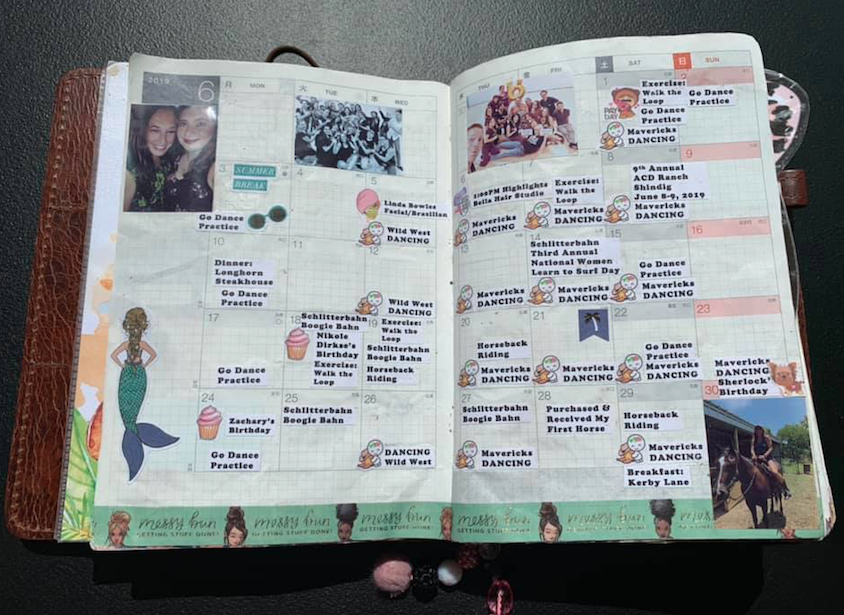 2019 6
月 MON
火 TUE
水 WED
THU
金 FRI
土 SAT
日 SUN
1
Exercise:
Walk the
Loop
PAY
DAY
Go Dance
Practice
Mavericks
DANCING
2
Go Dance
Practice
3
SUMMER
BREAK
Go Dance
Practice
4
5
Linda Bowles
Facial/Brazilian
Wild West
DANCING
1:00PM Highlights
Bella Hair Studio
Mavericks
DANCING
Exercise:
Walk the
Loop
Mavericks
DANCING
8
9th Annual
ACD Ranch
Shindig
June 8-9, 2019
Mavericks
DANCING
9
10
Dinner:
Longhorn
Steakhouse
Go Dance
Practice
11
12
Wild West
DANCING
13
Mavericks
DANCING
14
Schlitterbahn
Third Annual
National Women
Learn to Surf Day
Mavericks
DANCING
15
Go Dance
Practice
Mavericks
DANCING
16
17
Go Dance
Practice
18
Schlitterbahn
Boogie Bahn
Nikole
Dirkse's
Birthday
Exercise:
Walk the
Loop
19
Exercise:
Walk the
Loop
Schlitterbahn
Boogie Bahn
Horseback
Riding
20
Horseback
Riding
Mavericks
DANCING
21
Mavericks
DANCING
22
Go Dance
Practice
Mavericks
DANCING
23
Mavericks
DANCING
Sherlock's
Birthday
24
Zachary's
Birthday
Go Dance
Practice
25
Schlitterbahn
Boogie Bahn
26
DANCING
Wild West
27
Schlitterbahn
Boogie Bahn
Mavericks
DANCING
28
Purchased &
Received My
First Horse
29
Horseback
Riding
Mavericks
DANCING
Breakfast:
Kerby Lane
30
messy bun messy bun messy bun messy bun messy bun
GETTING STUFF DONE! GETTING STUFF DONE! GETTING STUFF DONE! GETTING STUFF DONE! GETTING STUFF DONE!